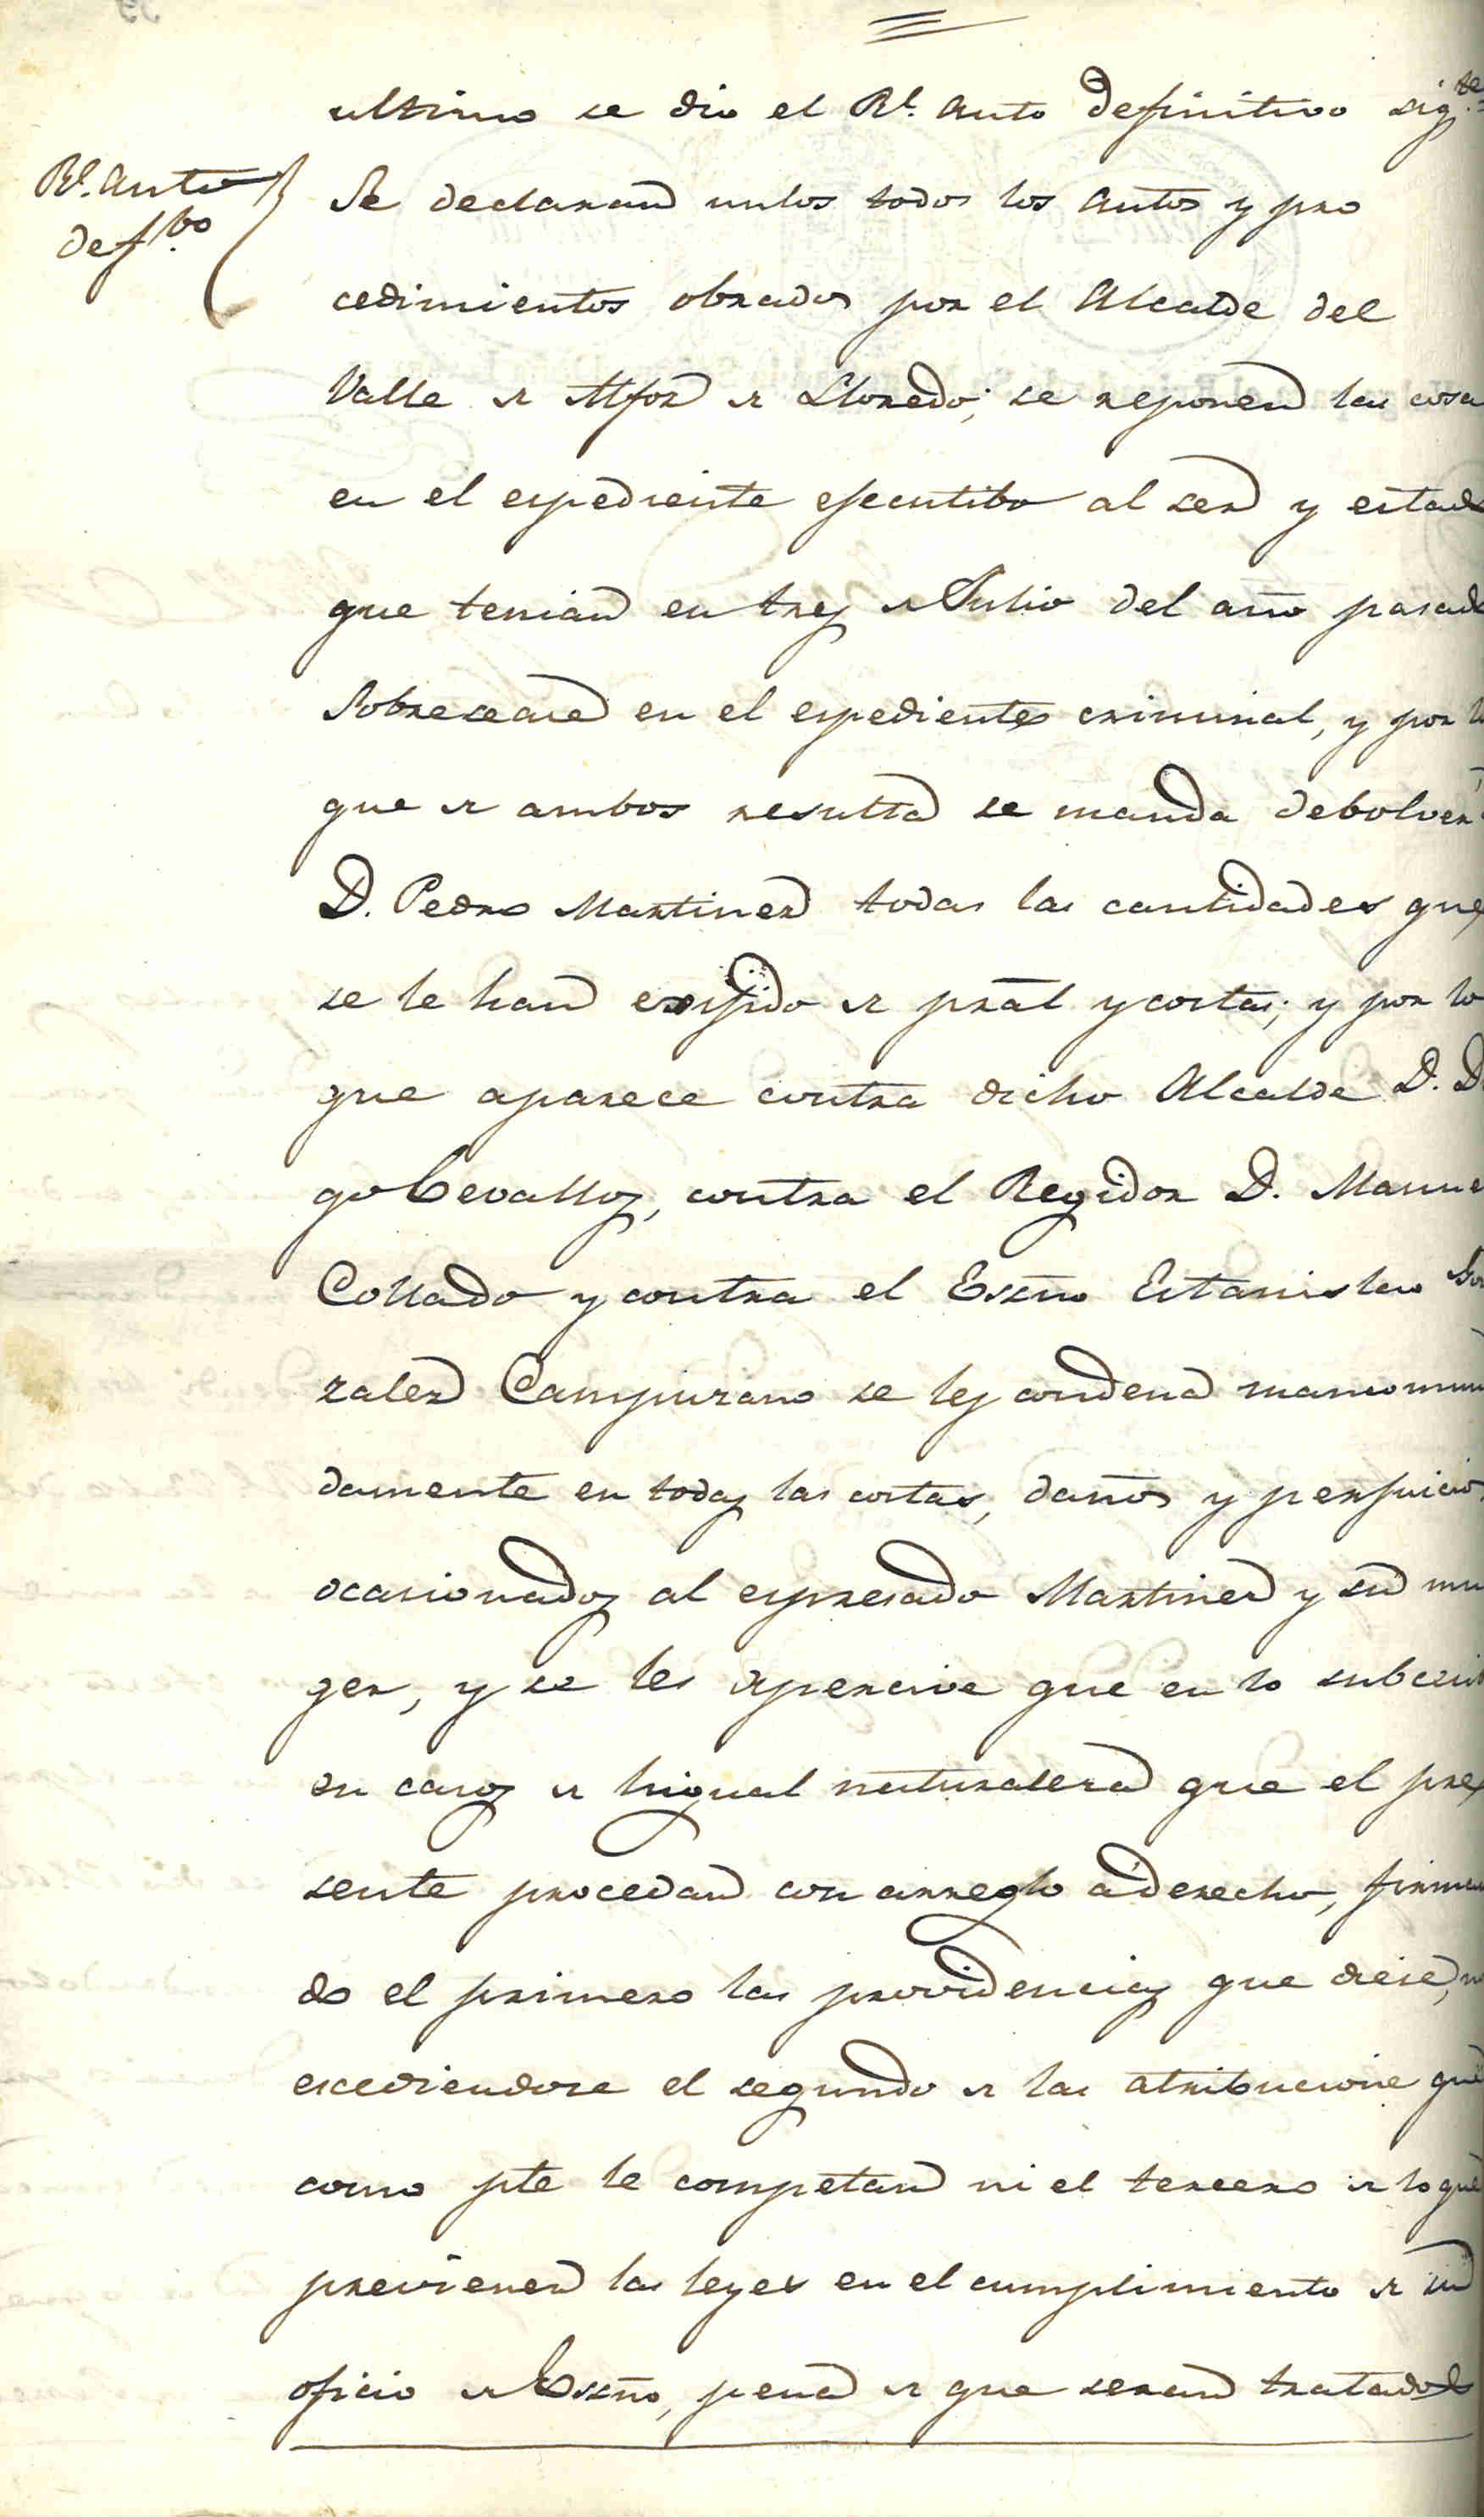 ultimo se dio el Rl. Auto Definitivo sigte
Rl. Auto
defbo
Se declaran nulos todos los Autos y pro
cedimientos obrados por el Alcalde del
Valle de Alfoz de Lloredo; se reponen las cosa
en el espediente ejecutibo al ser y estado
que tenian en tres de Julio del año pasado
Sobreseace en el espediente criminal, y por lo
que de ambos resulta se manda debolver á
D. Pedro Martinez todas las cantidades que
se le han exsijido de pral y costas; y por lo
que aparece contra dicho Alcalde D. Di
go Cevallos, contra el Regidor D. Manue
Collado y contra el Esno Estanislao Gon
zalez Campuzano se les condena mancomun
damente en todas las costas, daños y perjuicios
ocasionados al espresado Martinez y su mu
ger, y se les apercive que en lo subcesi
en casos de higual naturaleza que el pre
sente procedan con arreglo á derecho, firman
do el primero las providencias que diese, no
escediendose el segundo de las atribucione que
como pte le competan ni el tercero de lo que
previenen las leyes en el cumplimiento de su
oficio de Esno, pena de que seran tratados